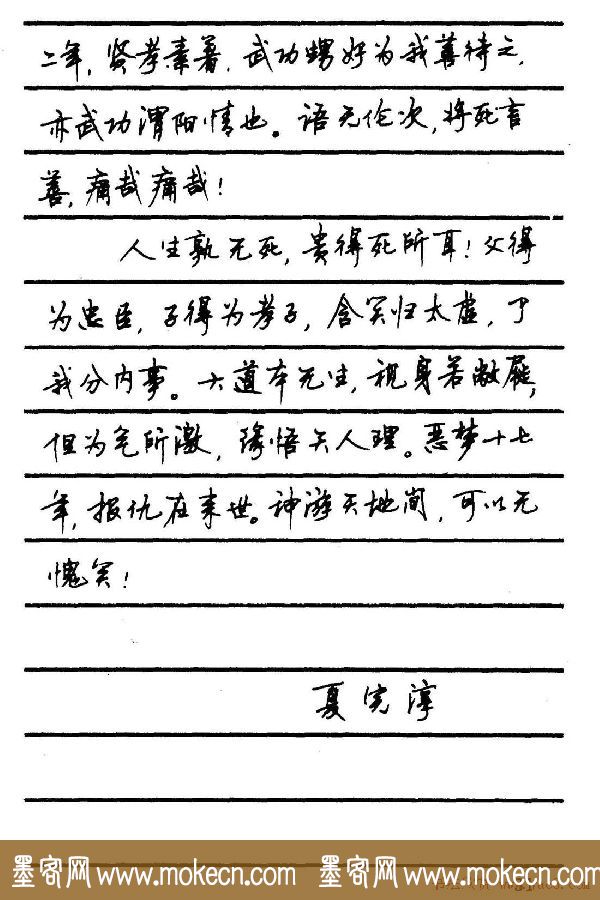 二年，贤孝素著，武功甥好为我善待之，
亦武功渭阳情也。语无伦次，将死言
善，痛哉痛哉！
人生孰无死，贵得死所耳！父得
为忠臣，子得为孝子，含笑归太虚，了
我分内事。大道本无生，视身若敝屣，
但为气所激，缘悟天人理。恶梦十七
年，报仇在来世。神游天地间，可以无
愧矣！
夏完淳
墨客网 www.mokecn.com 墨客网 www.mokecn.com